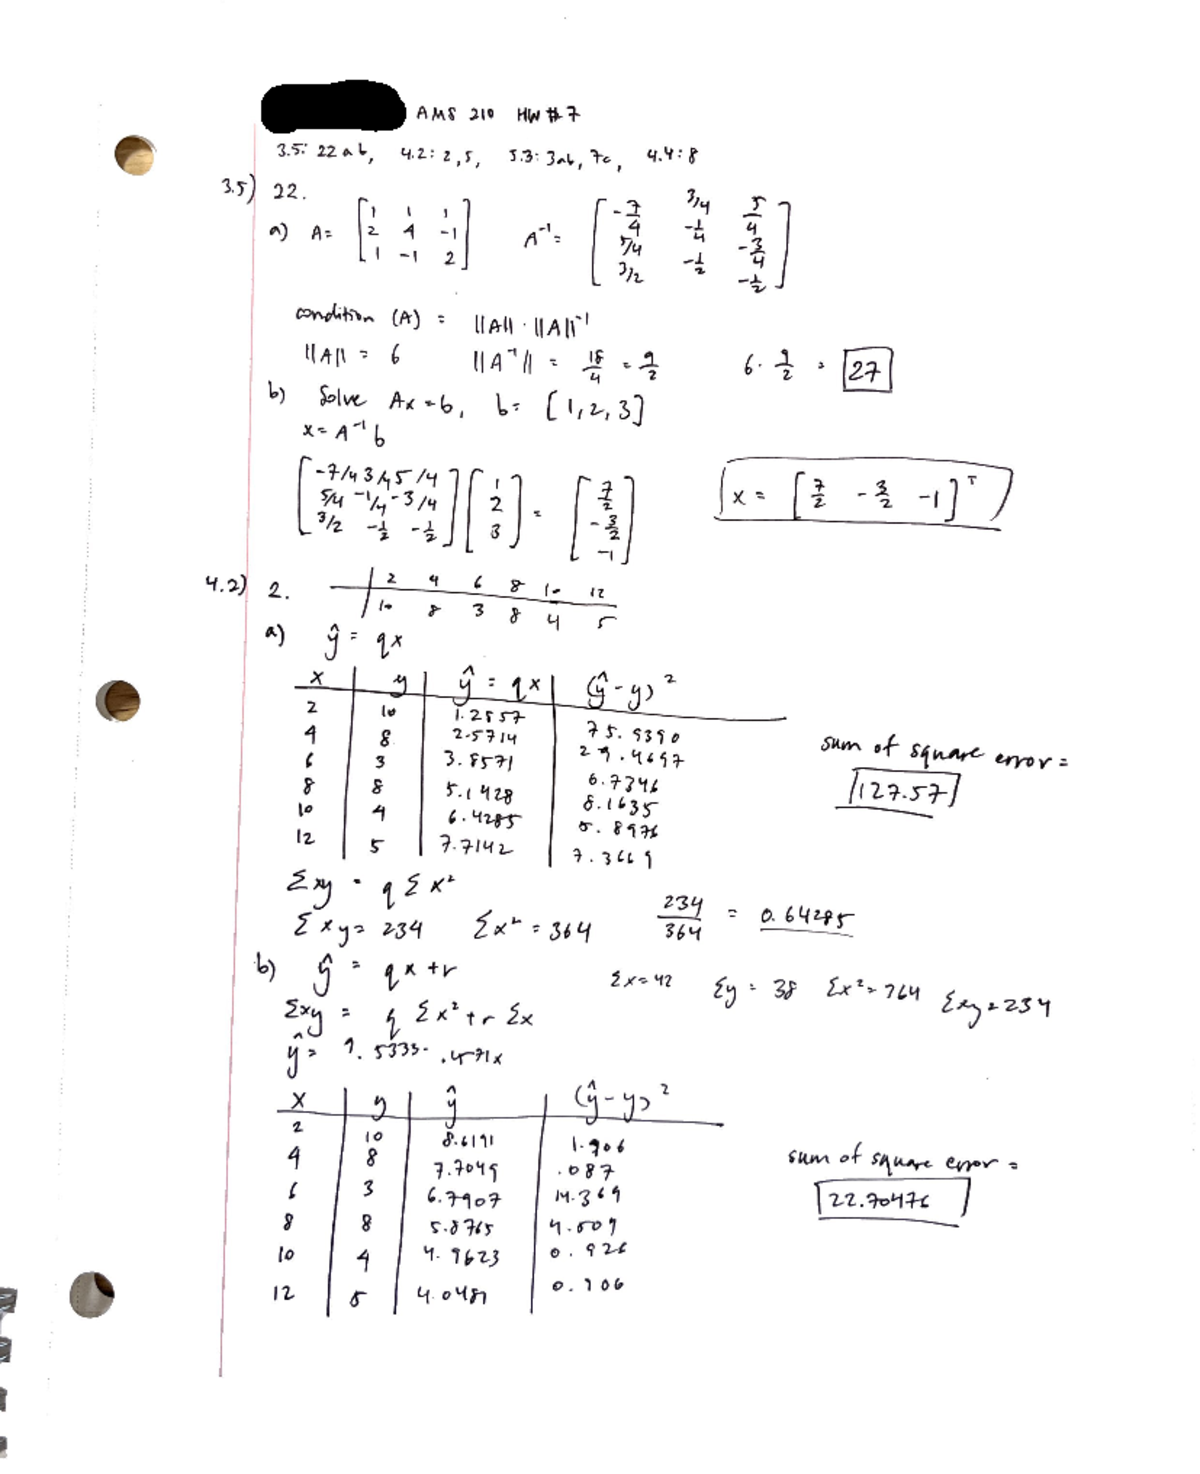 AMS 210 HW #7
3.5: 22 ab, 4.2: 2,5, 5.3: 3ab, 7c, 4.4: 8
3.5) 22.
a) A = [1 1 1; 2 4 -1; 1 -1 2] A⁻¹ = [-7/4 3/4 5/4; 5/4 -1/4 -3/4; 3/2 -1/2 -1/2]
condition (A) = ||A|| · ||A||⁻¹
||A|| = 6 ||A⁻¹|| = 18/4 = 9/2 6 · 9/2 = 27
b) Solve Ax = b, b = [1,2,3]
x = A⁻¹ b
[-7/4 3/4 5/4; 5/4 -1/4 -3/4; 3/2 -1/2 -1/2] [1; 2; 3] = [7/2; -3/2; -1] x = [7/2 -3/2 -1]ᵀ
4.2) 2. 2 4 6 8 10 12
10 8 3 8 4 5
a) ŷ = qx
x y ŷ = qx (ŷ-y)²
2 10 1.2857
4 8 2.5714 29.4697
6 3 3.8571
8 8 5.1428 8.1635
10 4 6.4285 5.8976
12 5 7.7142 7.3669
sum of square error =
127.57
Σxy = q Σx²
Σxy = 234 Σx² = 364 234/364 = 0.64285
b) ŷ = qx + r Σx = 42 Σy = 38 Σx² = 364 Σxy = 234
Σxy = q Σx² + r Σx
ŷ = 9.5333 - .4571x
x y ŷ (ŷ-y)²
2 10 8.6191 1.906
4 8 7.7049 .087
6 3 6.7907 14.369
8 8 5.8765 4.509
10 4 4.9623 0.926
12 5 4.0481 0.906
sum of square error =
22.70476